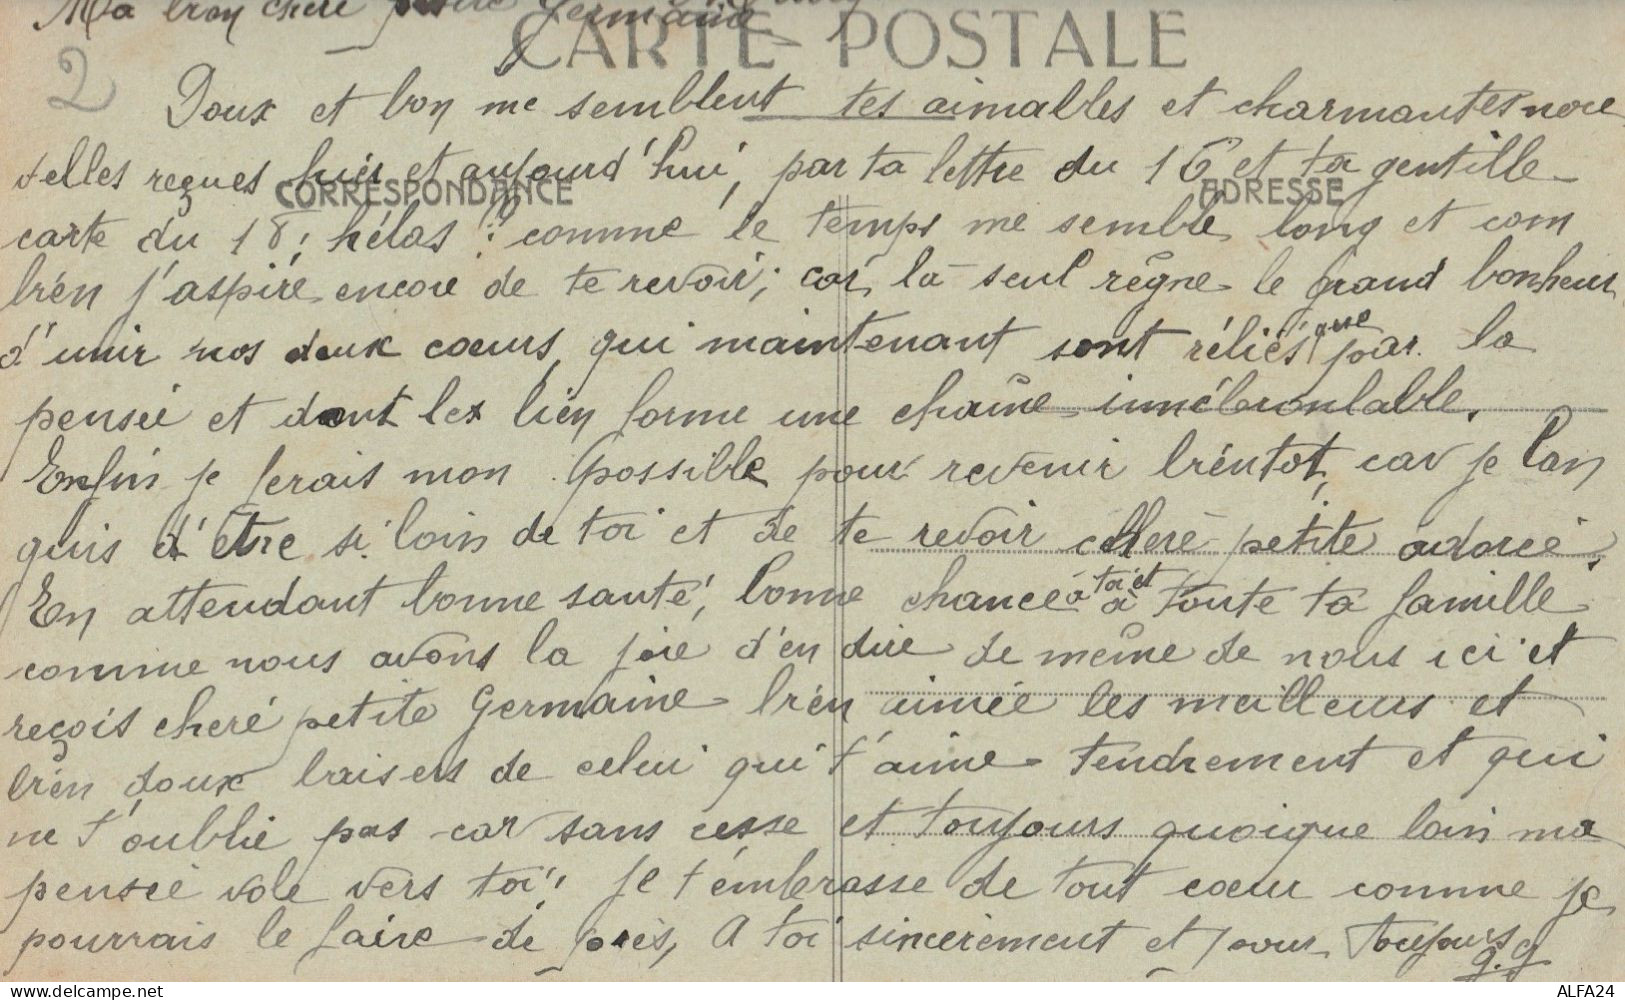 Ma bien chère petite Germaine
CARTE POSTALE
2
Doux et bon me semblent tes aimables et charmantes nou
velles reçues hier et aujourd'hui, par ta lettre du 16 et ta gentille
CORRESPONDANCE
ADRESSE
carte du 18; hélas! comme le temps me semble long et com
bien j'aspire encore de te revoir; car là seul règne le grand bonheur
d'unir nos deux cœurs, qui maintenant sont réliés que par la
pensée et dont les lien forme une chaîne innébranlable.
Enfin je ferais mon possible pour revenir bientôt, car je lan
guis d'être si loin de toi et de te revoir cheré petite adorée.
En attendant bonne santé, bonne chance à toi et à toute ta famille
comme nous avons la joie d'en dire de même de nous ici et
reçois cheré petite Germaine bien aimée les meilleurs et
bien doux baisers de celui qui t'aime tendrement et qui
ne t'oublie pas car sans cesse et toujours quoique loin ma
pensée vole vers toi! je t'embrasse de tout cœur comme je
pourrais le faire de près, A toi sincèrement et pour toujours
g.g
ALFA24